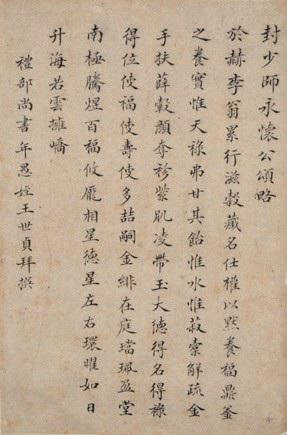 封少師永懷公頌略
於赫李翁累行滋穀藏名仕權以默養福鼎釜
之養實惟天祿弗甘其飴惟水惟菽橐解疏金
手扶薛轂顏奪袗紫肌凌帶玉大德得名得祿
得位使福使壽使多喆嗣金緋在庭璫珮盈堂
南極騰煜百福攸龐相星德星左右環曜如日
升海若雲擁嶠
禮部尚書年愚姪王世貞拜撰